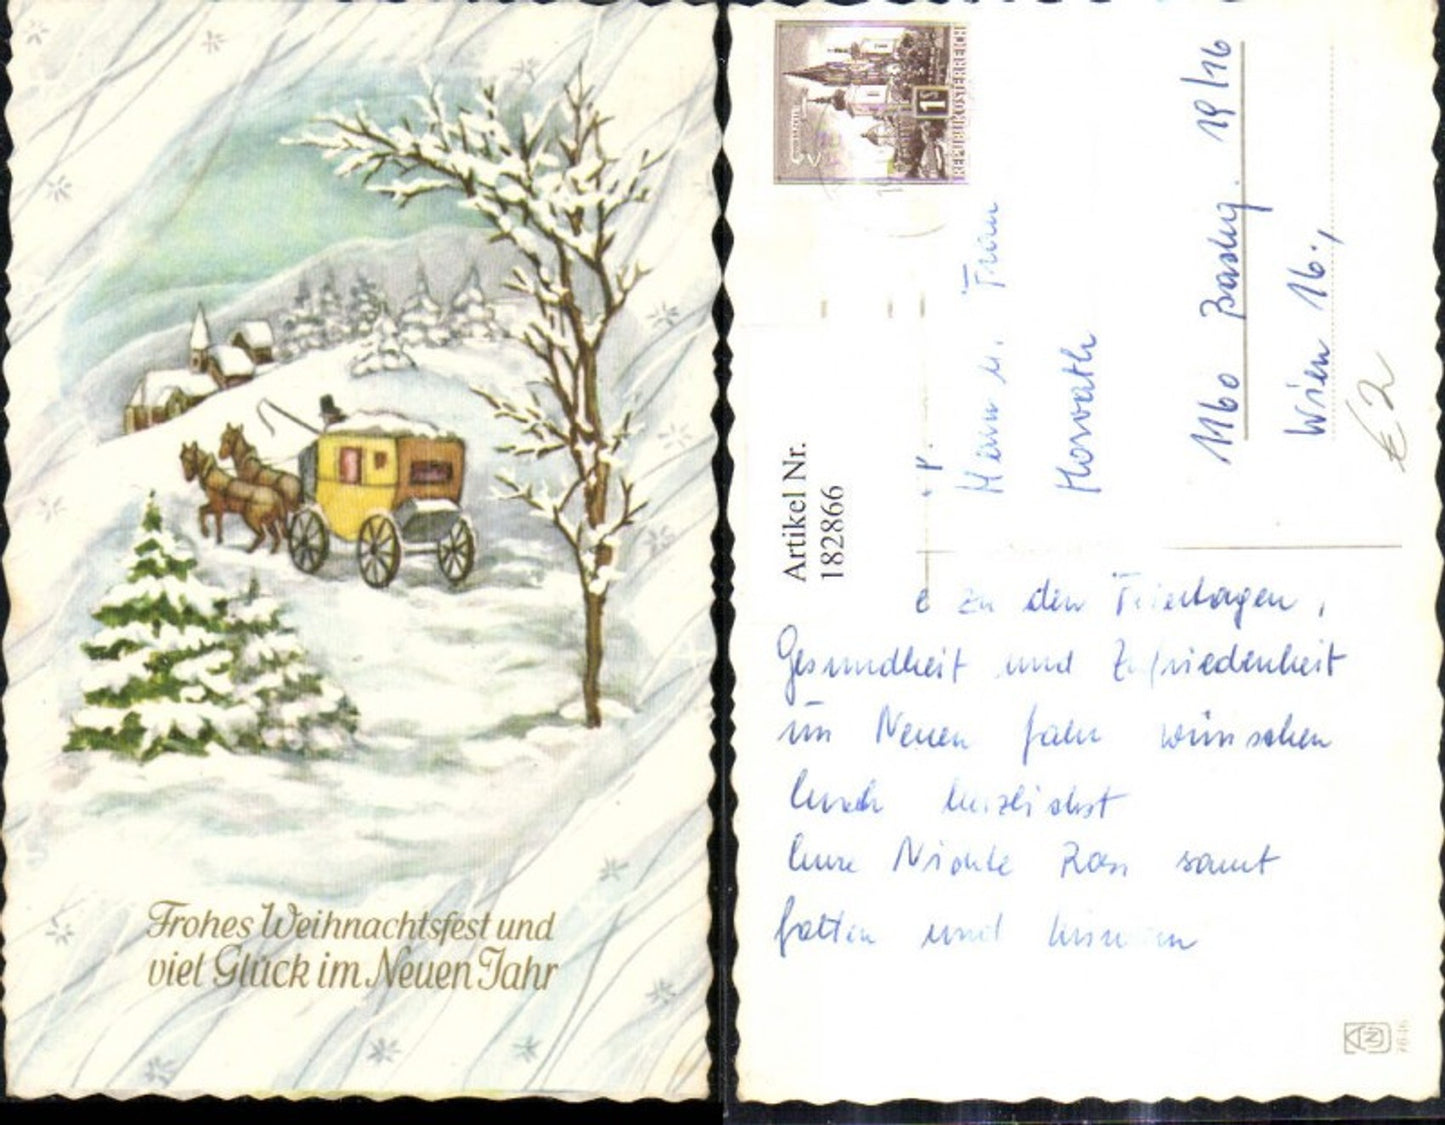 Frohes Weihnachtsfest und
viel Glück im Neuen Jahr
1 S
REPUBLIK ÖSTERREICH
Artikel Nr.
182866
P.
Herrn u. Frau
Horvath
1160 19/16
Wien 16.,
€ 2
zu den Feiertagen,
Gesundheit und Zufriedenheit
im Neuen Jahr wünschen
Euch herzlichst
Eure Nichte samt
Gatten und
7646